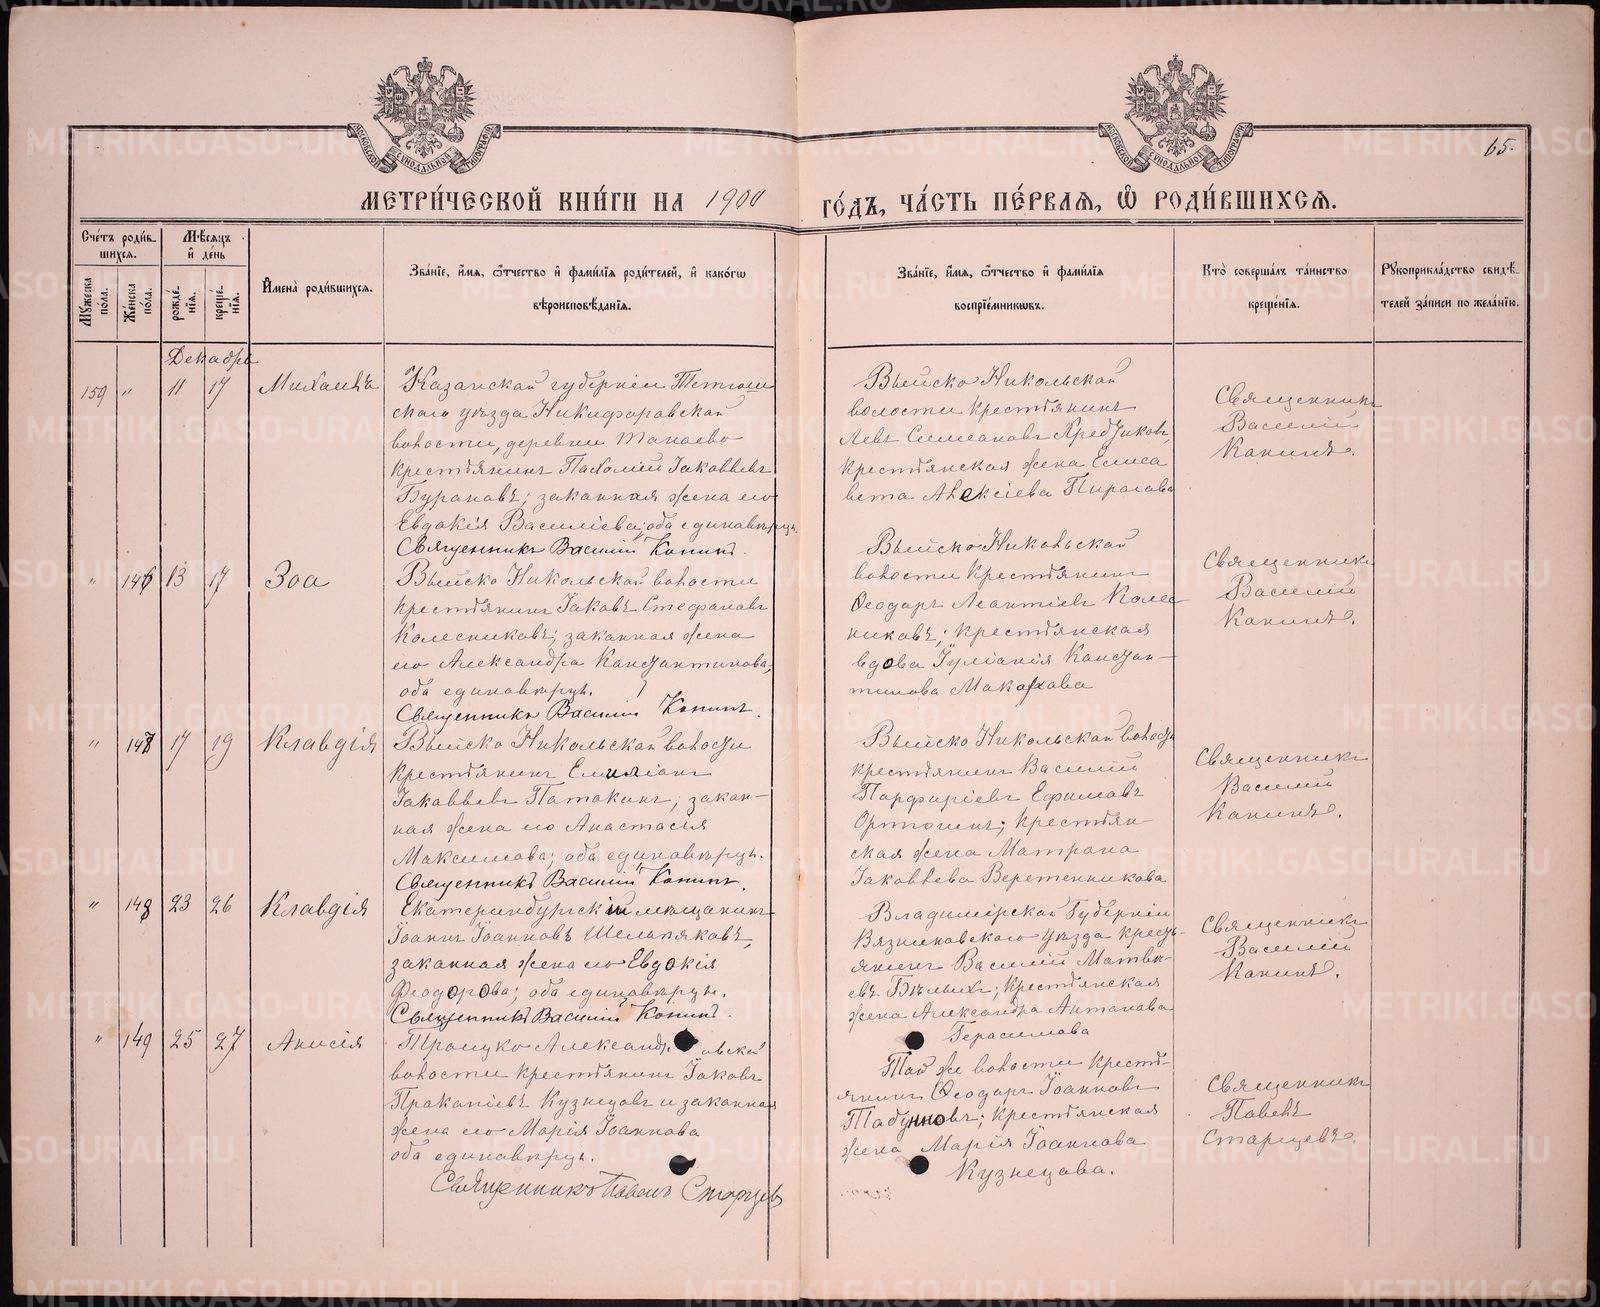 65.
МЕТРИ́ЧЕСКОЙ КНИ́ГИ НА 1900 ГО́ДЪ, ЧА́СТЬ ПЕ́РВАѦ, Ѡ҆ РОДИ́ВШИХСѦ.
Сче́тъ роди́вшихсѧ.
Мѣ́сѧцъ и҆ де́нь
Мꙋ́жеска по́ла.
Же́нска по́ла.
рожде́нїѧ.
креще́нїѧ.
И҆мена̀ роди́вшихсѧ.
Зва́нїе, и҆́мѧ, ѻ҆́тчество и҆ фами́лїѧ роди́телей, и҆ како́гѡ
вѣроисповѣ́данїѧ.
Зва́нїе, и҆́мѧ, ѻ҆́тчество и҆ фами́лїѧ
воспрїе́мникѡвъ.
Кто̀ соверша́лъ та́инство
креще́нїѧ.
Рꙋкоприкла́дство свидѣ́телей за́писи по жела́нїю.
Декабрь
159 " 11 17 Михаилъ
Казанской губернiи Тетюш
скаго уѣзда Никифоровской
волости, деревни Танаево
крестьянинъ Пахомiй Iаковлевъ
Бурановъ; законная жена его
Евдокiя Василiева; оба единовѣрцы.
Священникъ Василiй Конинъ.
Выйско Никольской
волости крестьянинъ
Левъ Симеоновъ
крестьянская жена Елиса
вета Алексiева Пирогова
Священникъ
Василiй
Конинъ.
" 146 13 17 Зоа
Выйско Никольской волости
крестьянинъ Iаковъ Стефановъ
Колесниковъ; законная жена
его Александра Константинова,
оба единовѣрцы.
Священникъ Василiй Конинъ.
Выйско Никольской
волости крестьянинъ
Ѳеодоръ Леонтiевъ Колес
никовъ; крестьянская
вдова Iулiанiя Констан-
тинова Макарова
Священникъ
Василiй
Конинъ.
" 147 17 19 Клавдiя
Выйско Никольской волости
крестьянинъ Емилiанъ
Iаковлевъ Потакинъ; закон-
ная жена его Анастасiя
Максимова; оба единовѣрцы.
Священникъ Василiй Конинъ.
Выйско Никольской волости
крестьянинъ Василiй
Порфирiевъ Ефимовъ
крестьян-
ская жена Матрона
Iаковлева Веретенникова
Священникъ
Василiй
Конинъ.
" 148 23 26 Клавдiя
Екатеринбургскiй мѣщанинъ
Iоаннъ Iоанновъ Шельпяковъ,
законная жена его Евдокiя
Феодорова; оба единовѣрцы.
Священникъ Василiй Конинъ.
Владимiрской Губернiи
Вязниковскаго уѣзда кресть-
янинъ Василiй Матвѣ-
евъ Бѣлыхъ; крестьянская
жена Александра Антонова
Герасимова
Священникъ
Василiй
Конинъ.
" 149 25 27 Анисiя
Троицко Александровской
волости крестьянинъ Iаковъ
Прокопiевъ Кузнецовъ и законная
жена его Марiя Iоаннова
оба единовѣрцы.
Священникъ Павелъ Старцевъ
Той же волости кресть-
янинъ Ѳеодоръ Iоанновъ
Табунновъ; крестьянская
жена Марiя Iоаннова
Кузнецова.
Священникъ
Павелъ
Старцевъ.
METRIKI.GASO-URAL.RU